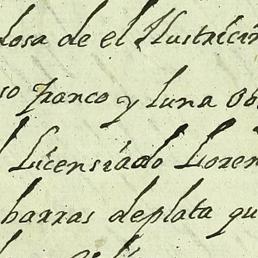 dosa de el Ilustricim
so franco y luna Ob
Licensiado Loren
barras deplata qu